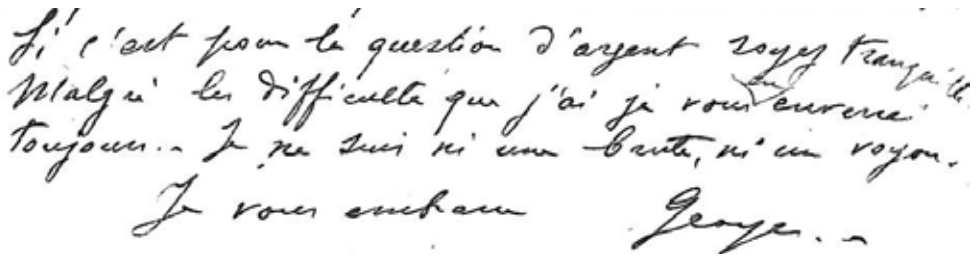 Si c'est pour la question d'argent soyez tranquille.
Malgré les difficulté que j'ai je vous en enverrai
toujours.. Je ne suis ni une brute, ni un voyou.
Je vous embrasse Georges..